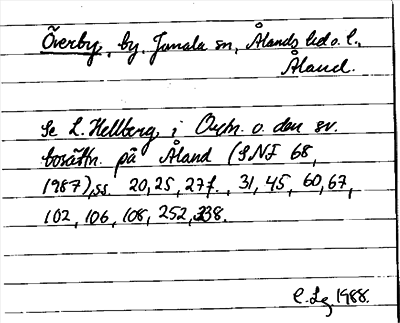 Överby, by, Jomala sn, Ålands hd o. l.,
Åland.
Se L. Hellberg, i Ortn. o. den sv.
bosättn. på Åland (SNF 68,
1987), ss. 20, 25, 27f., 31, 45, 60, 67,
102, 106, 108, 252, 238.
C. Lg 1988.